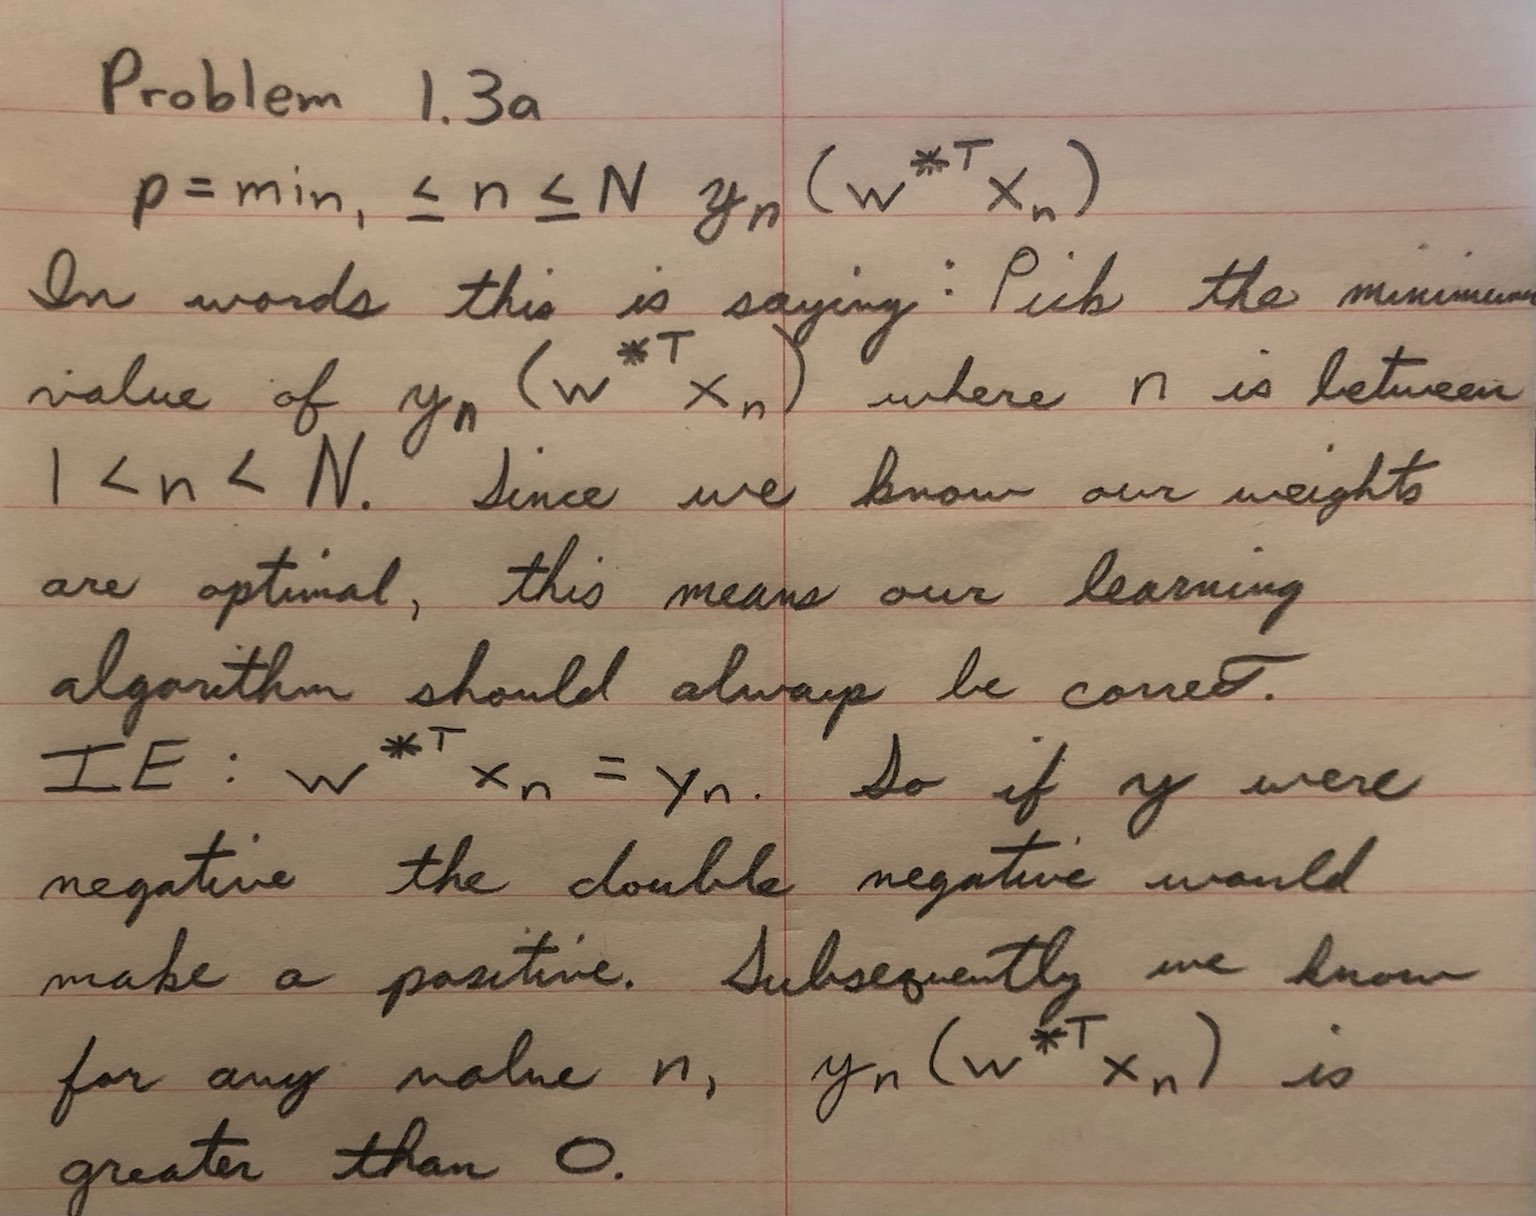 Problem 1.3a
p = min, ≤ n ≤ N yₙ (w*ᵀxₙ)
In words this is saying: Pick the minimum
value of yₙ (w*ᵀxₙ) where n is between
1 < n < N. Since we know our weights
are optimal, this means our learning
algorithm should always be correct.
IE: w*ᵀxₙ = yₙ. So if y were
negative the double negative would
make a positive. Subsequently we know
for any value n, yₙ (w*ᵀxₙ) is
greater than 0.